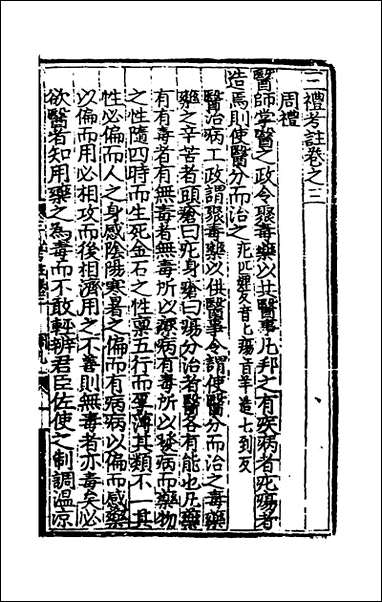 三禮考註卷之三
周禮
醫師掌醫之政令聚毒藥以共醫事凡邦之有疾病者疕瘍者
造焉則使醫分而治之疕匹婢反音七瘍音羊造七到反
醫治病工政謂聚毒藥以供醫事令謂使醫分而治之毒藥
藥之辛苦者頭瘡曰疕身瘡曰瘍分治者醫各有能也凡藥
有有毒者有無毒者無毒所以療病有毒所以發病而藥物
之性隨四時而生死金石之性稟五行而孕薄其類不一其
性必偏而人之身感陰陽寒暑之偏而有病病以偏而感藥
以偏而用必相攻而後相濟用之不善則無毒者亦毒矣必
欲醫者知用藥之為毒而不敢輕辨君臣佐使之制調溫涼